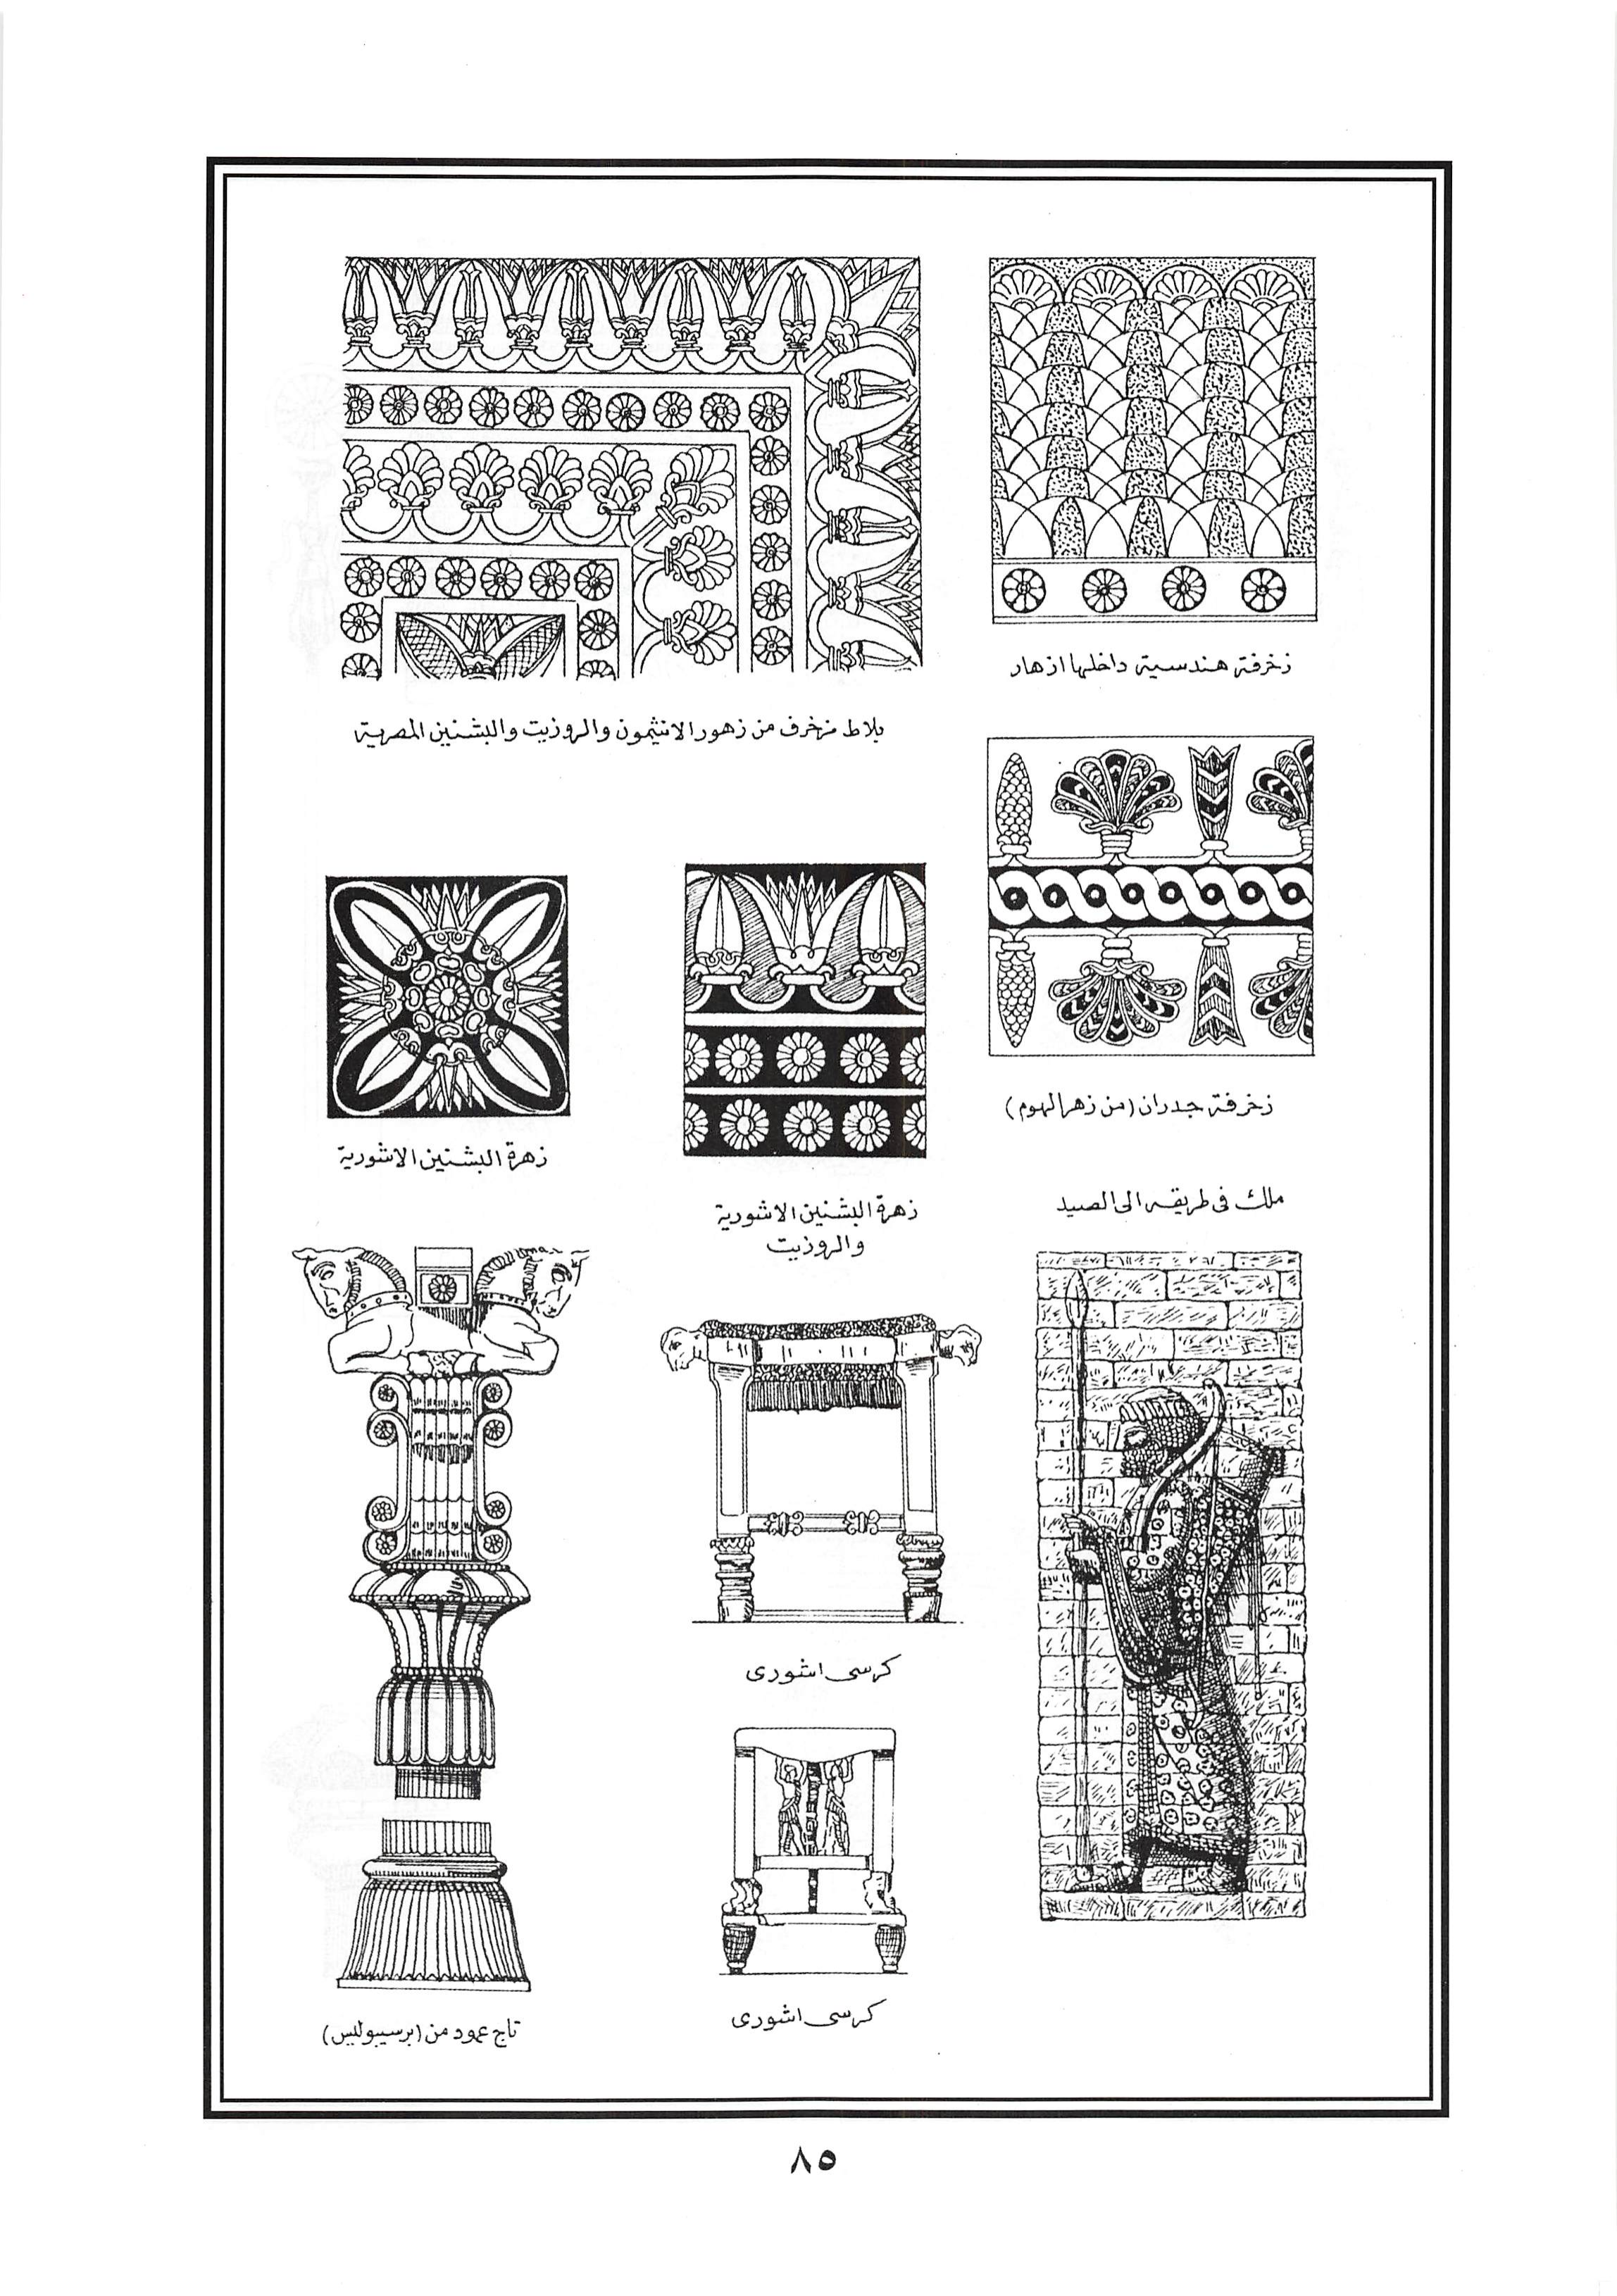 زخرفة هندسية داخلها ازهار
بلاط مزخرف من زهور الانثيمون والروزيت والبشنين المصرية
زخرفة جدران (من زهر الهوم)
زهرة البشنين الاشورية
والروزيت
زهرة البشنين الاشورية
ملك فى طريقه الى الصيد
كرسى اشورى
كرسى اشورى
تاج عمود من (برسيبوليس)
٨٥